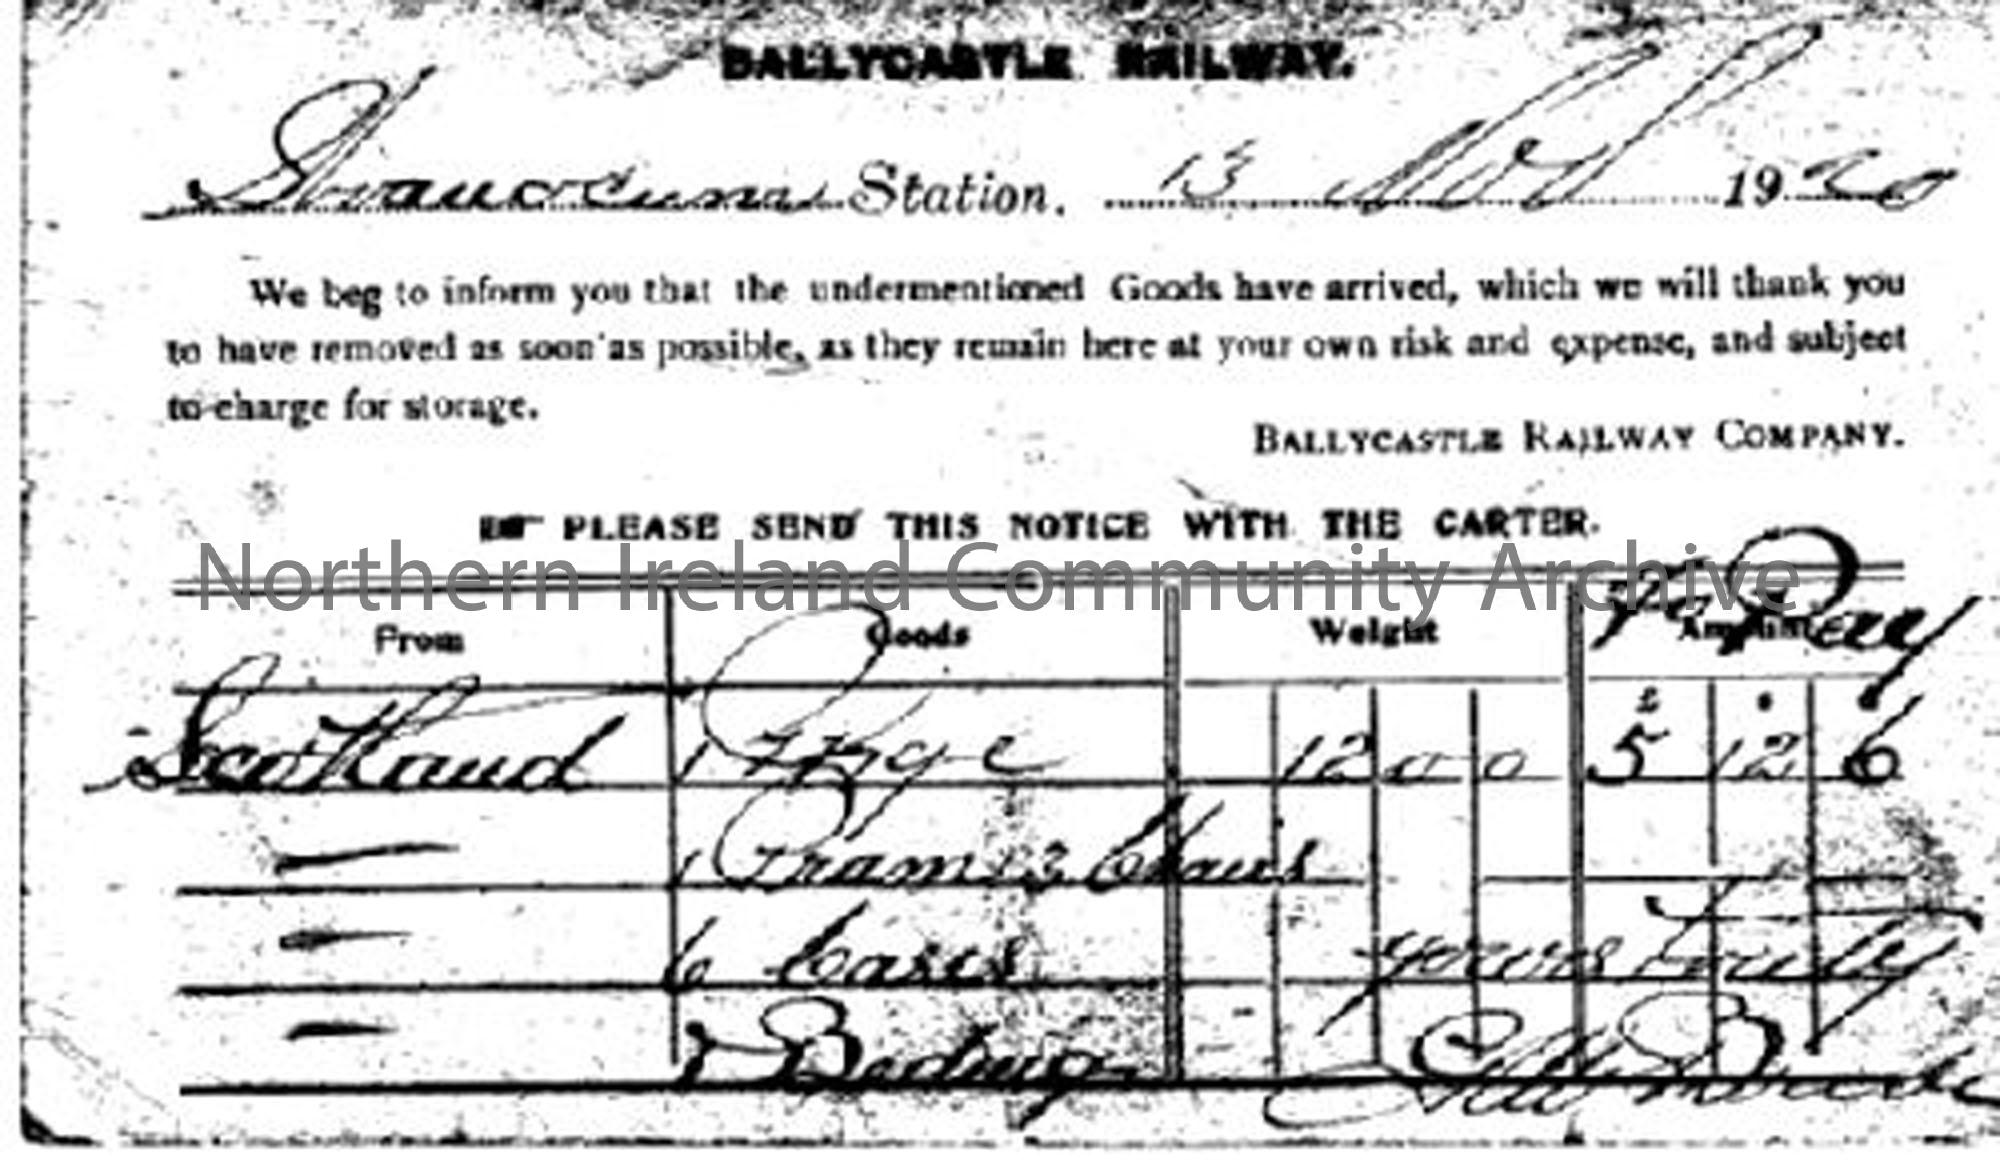 BALLYCASTLE RAILWAY.
Stranocum Station. 13 Nov 1920
We beg to inform you that the undermentioned Goods have arrived, which we will thank you
to have removed as soon as possible, as they remain here at your own risk and expense, and subject
to charge for storage.
BALLYCASTLE RAILWAY COMPANY.
PLEASE SEND THIS NOTICE WITH THE CARTER.
Northern Ireland Community Archive
To Pay
From Goods Weight Amount
£ s
Scotland 1 12 0 0 5 12 6
— 1 Pram & 3 Chairs
— 6 Cases
— Bedding
Yours truly